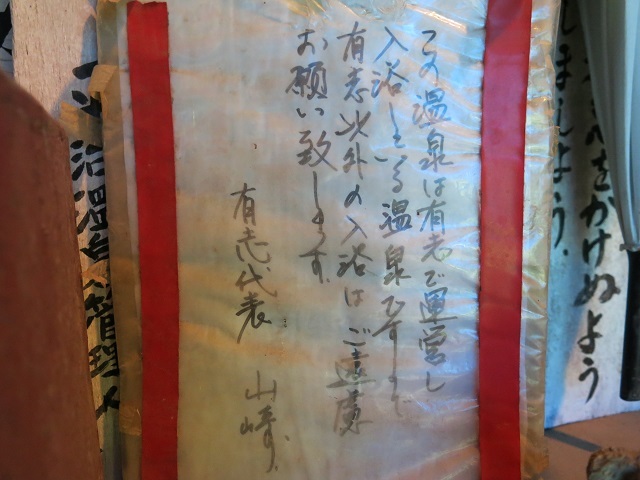 しましょう
をかけぬよう
この温泉は有志で運営し
入浴している温泉ですので
有志以外の入浴はご遠慮
お願い致します。
有志代表 山崎
沼温泉管理